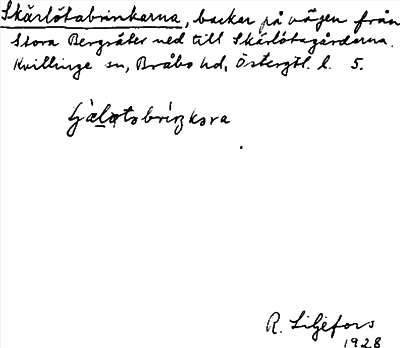 Skärlötabrinkarna, backar på vägen från
Stora Bergsäter ned till Skärlötagårdarna.
Kvillinge sn, Bråbo hd, Östergtl. l. 5.
R. Liljefors
1928